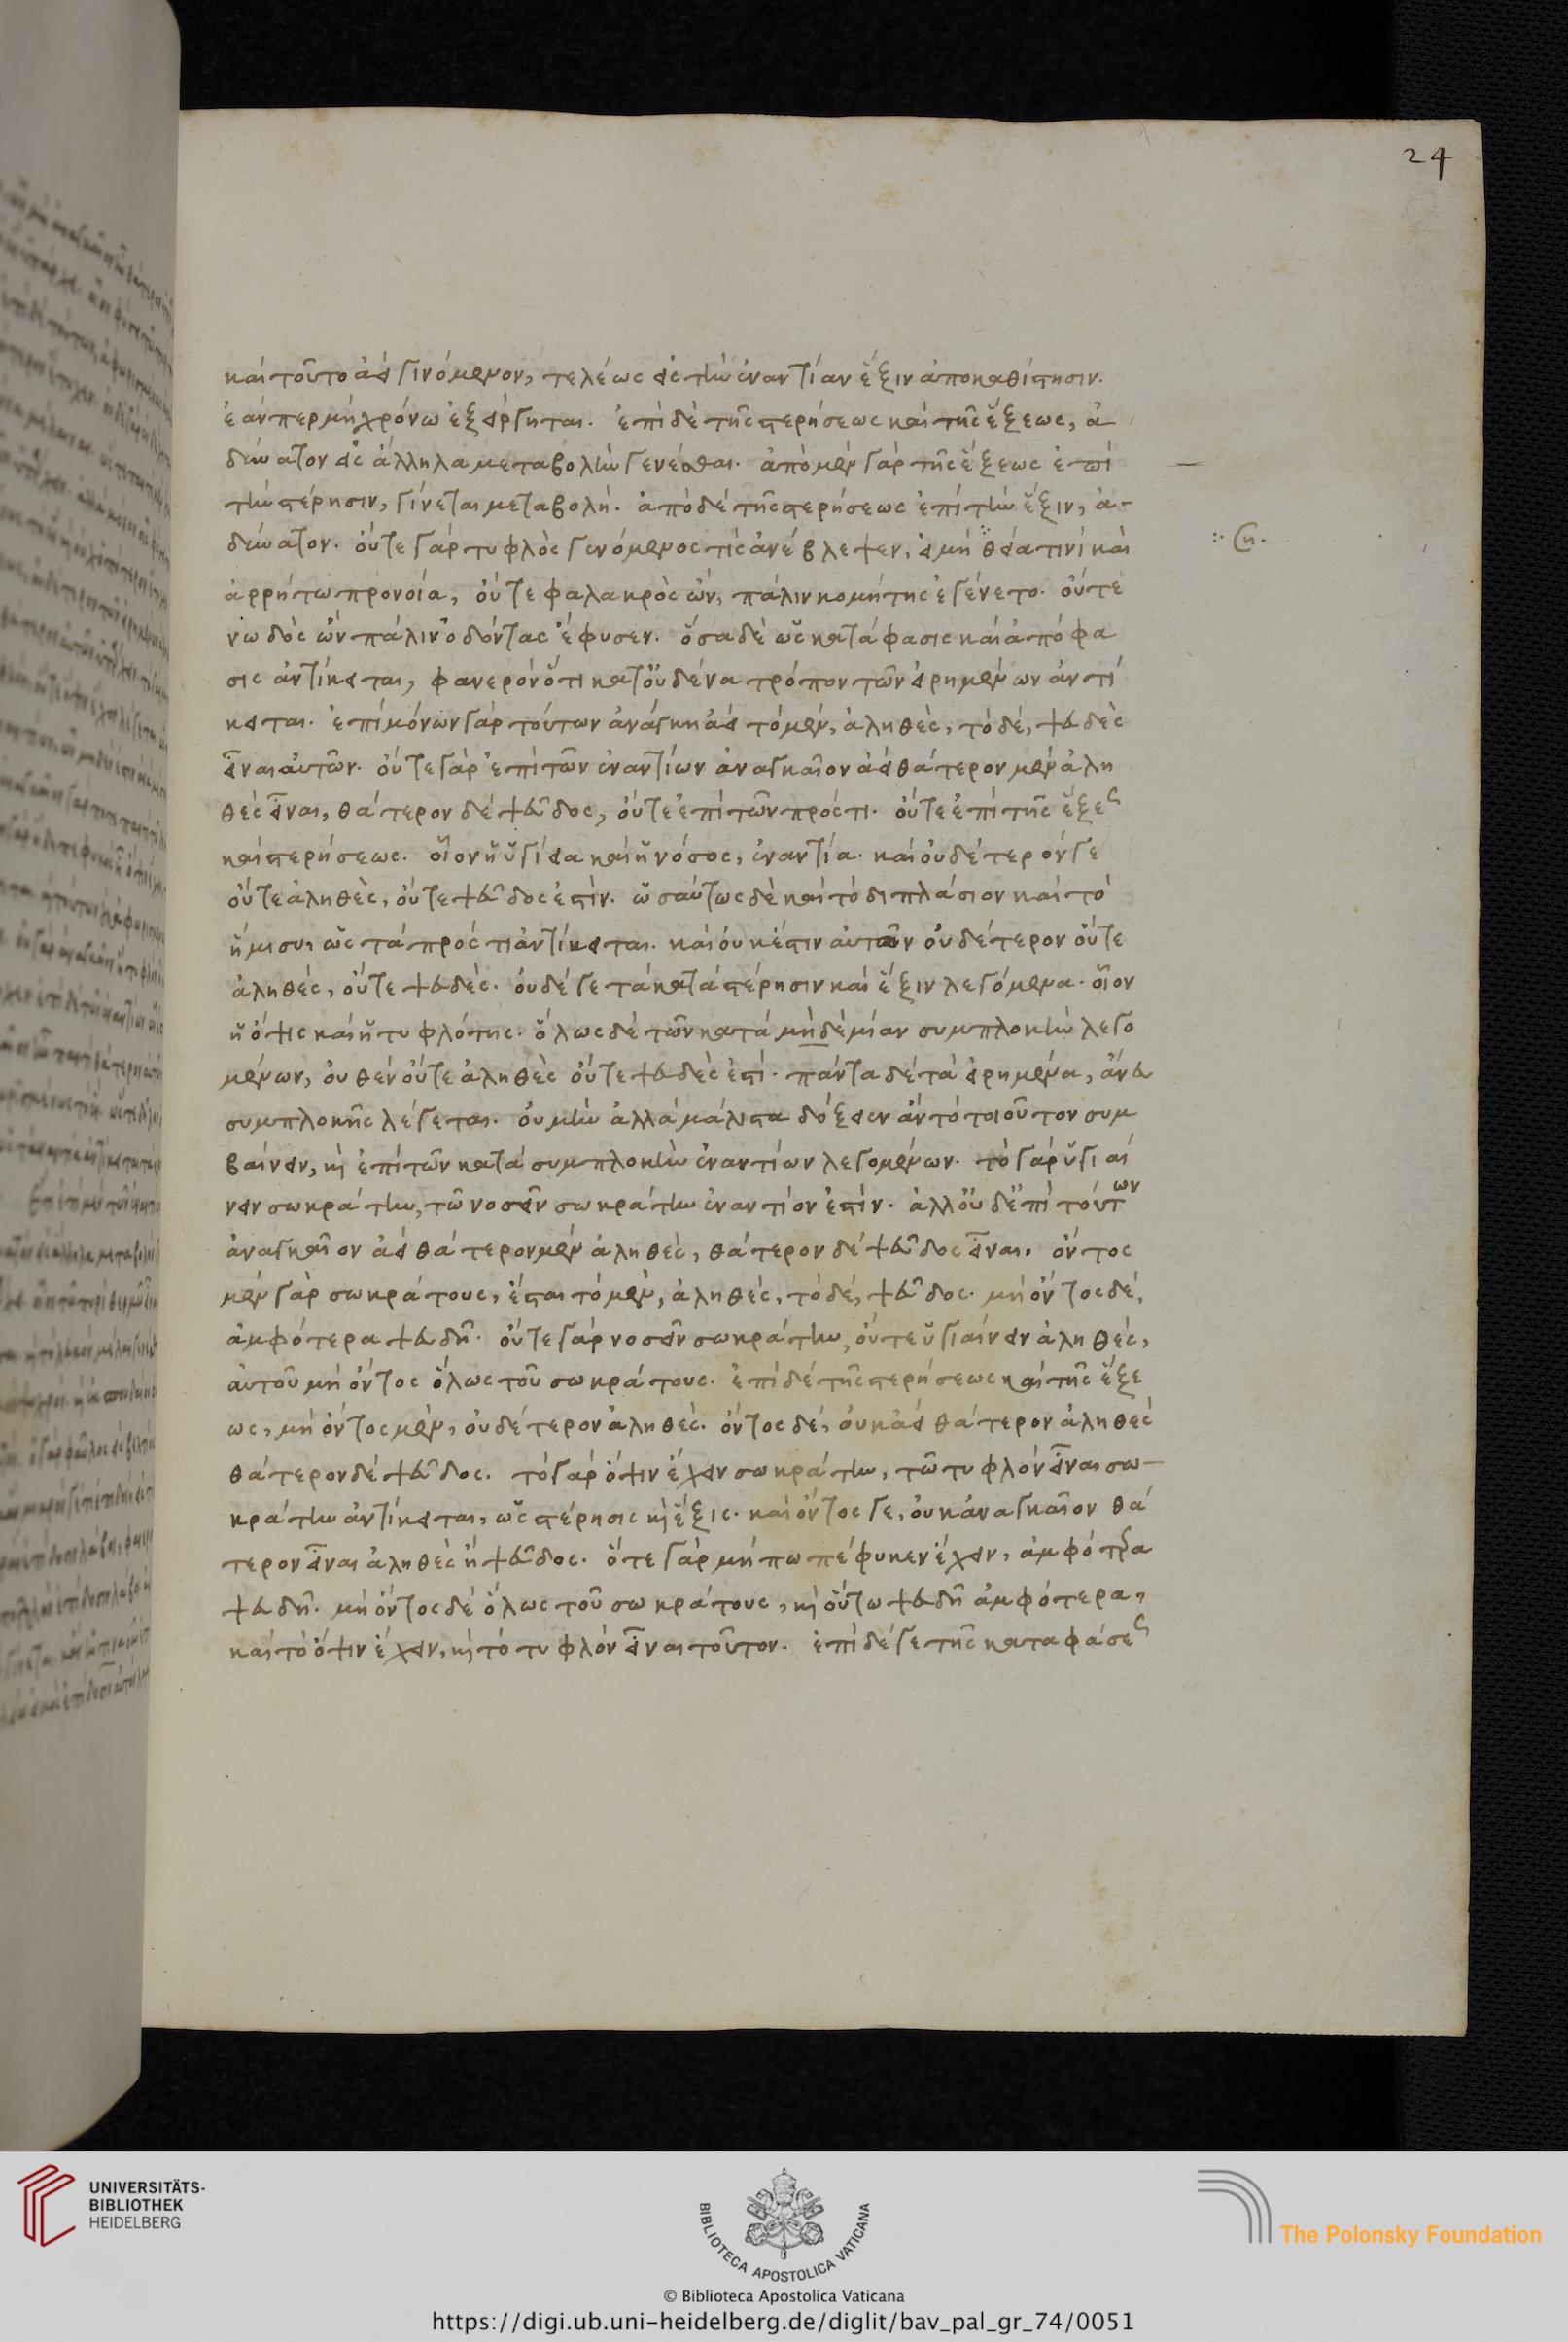 24
καὶ τοῦτο ἀεὶ γινόμενον, τελέως εἰς τὴν ἐναντίαν ἕξιν ἀποκαθίστησιν.
ἐάνπερ μὴ χρόνω ἐξείργηται. ἐπὶ δὲ τῆς στερήσεως καὶ τῆς ἕξεως, ἀ
δύνατον εἰς ἄλληλα μεταβολὴν γενέσθαι. ἀπὸ μὲν γὰρ τῆς ἕξεως ἐπὶ
τὴν στέρησιν, γίνεται μεταβολή. ἀπὸ δὲ τῆς στερήσεως ἐπὶ τὴν ἕξιν, ἀ-
δύνατον. οὔτε γὰρ τυφλὸς γενόμενος τὶς ἀνέβλεψεν, εἰ μὴ θεία τινὶ καὶ
ἀρρήτω προνοία, οὔτε φαλακρὸς ὢν, πάλιν κομήτης ἐγένετο. οὔτε
νωδὸς ὢν πάλιν ὀδόντας ἔφυσεν. ὅσα δὲ ὡς κατάφασις καὶ ἀπόφα
σις ἀντίκειται, φανερὸν ὅτι κατ' οὐδένα τρόπον τῶν εἰρημένων ἀντί
κειται. ἐπὶ μόνων γὰρ τούτων ἀνάγκη ἀεὶ τὸ μὲν, ἀληθὲς, τὸ δὲ, ψευδὲς
εἶναι αὐτῶν. οὔτε γὰρ ἐπὶ τῶν ἐναντίων ἀναγκαῖον ἀεὶ θάτερον μὲν ἀλη
θὲς εἶναι, θάτερον δὲ ψεῦδος, οὔτε ἐπὶ τῶν πρός τι. οὔτε ἐπὶ τῆς ἕξεως
καὶ στερήσεως. οἷον ἡ ὑγίεια καὶ ἡ νόσος, ἐναντία. καὶ οὐδέτερόν γε
οὔτε ἀληθὲς, οὔτε ψεῦδος ἐστὶν. ὡσαύτως δὲ καὶ τὸ διπλάσιον καὶ τὸ
ἥμισυ, ὡς τὰ πρός τι ἀντίκειται. καὶ οὐκ ἔστιν αὐτῶν οὐδέτερον οὔτε
ἀληθὲς, οὔτε ψευδὲς. οὐδέ γε τὰ κατὰ στέρησιν καὶ ἕξιν λεγόμενα. οἷον
ἡ ὄψις καὶ ἡ τυφλότης. ὅλως δὲ τῶν κατὰ μὴδὲμίαν συμπλοκὴν λεγο
μένων, οὐθὲν οὔτε ἀληθὲς οὔτε ψευδὲς ἐστί. πάντα δὲ τὰ εἰρημένα, ἄνευ
συμπλοκῆς λέγεται. οὐ μὴν ἀλλὰ μάλιστα δόξειεν ἂν τὸ τοιοῦτον συμ
βαίνειν, καὶ ἐπὶ τῶν κατὰ συμπλοκὴν ἐναντίων λεγομένων. τὸ γὰρ ὑγιαί
νειν σωκράτην, τῶ νοσεῖν σωκράτην ἐναντίον ἐστὶν. ἀλλ' οὐδ' ἐπὶ τούτων
ἀναγκαῖον ἀεὶ θάτερον μὲν ἀληθὲς, θάτερον δὲ ψεῦδος εἶναι. ὄντος
μὲν γὰρ σωκράτους, ἔσται τὸ μὲν, ἀληθὲς, τὸ δὲ, ψεῦδος. μὴ ὄντος δὲ,
ἀμφότερα ψευδῆ. οὔτε γὰρ νοσεῖν σωκράτην, οὔτε ὑγιαίνειν ἀληθὲς,
αὐτοῦ μὴ ὄντος ὅλως τοῦ σωκράτους. ἐπὶ δὲ τῆς στερήσεως καὶ τῆς ἕξε
ως, μὴ ὄντος μὲν, οὐδέτερον ἀληθὲς. ὄντος δὲ, οὐκ ἀεὶ θάτερον ἀληθὲς
θάτερον δὲ ψεῦδος. τὸ γὰρ ὄψιν ἔχειν σωκράτην, τῶ τυφλὸν εἶναι σω-
κράτην ἀντίκειται, ὡς στέρησις καὶ ἕξις. καὶ ὄντος γε, οὐκ ἀναγκαῖον θά
τερον εἶναι ἀληθὲς ἢ ψεῦδος. ὅτε γὰρ μήπω πέφυκεν ἔχειν, ἀμφότερα
ψευδῆ. μὴ ὄντος δὲ ὅλως τοῦ σωκράτους, καὶ οὕτω ψευδῆ ἀμφότερα,
καὶ τὸ ὄψιν ἔχειν, καὶ τὸ τυφλὸν εἶναι τοῦτον. ἐπὶ δέ γε τῆς καταφάσεως
UNIVERSITÄTS-
BIBLIOTHEK
HEIDELBERG
BIBLIOTECA APOSTOLICA VATICANA
The Polonsky Foundation
© Biblioteca Apostolica Vaticana
https://digi.ub.uni-heidelberg.de/diglit/bav_pal_gr_74/0051